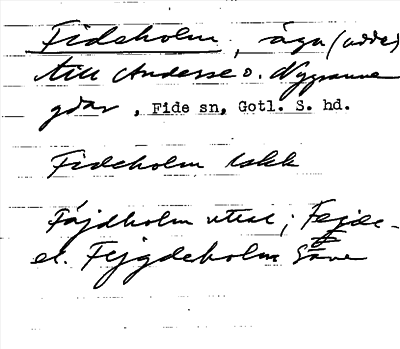 Fideholm, äga (udde)
till Anderse o. Nygranne
gdar, Fide sn, Gotl. S. hd.
Fideholm
Fäjdholm utial; Fejde-
el. Fejgdeholm Säve